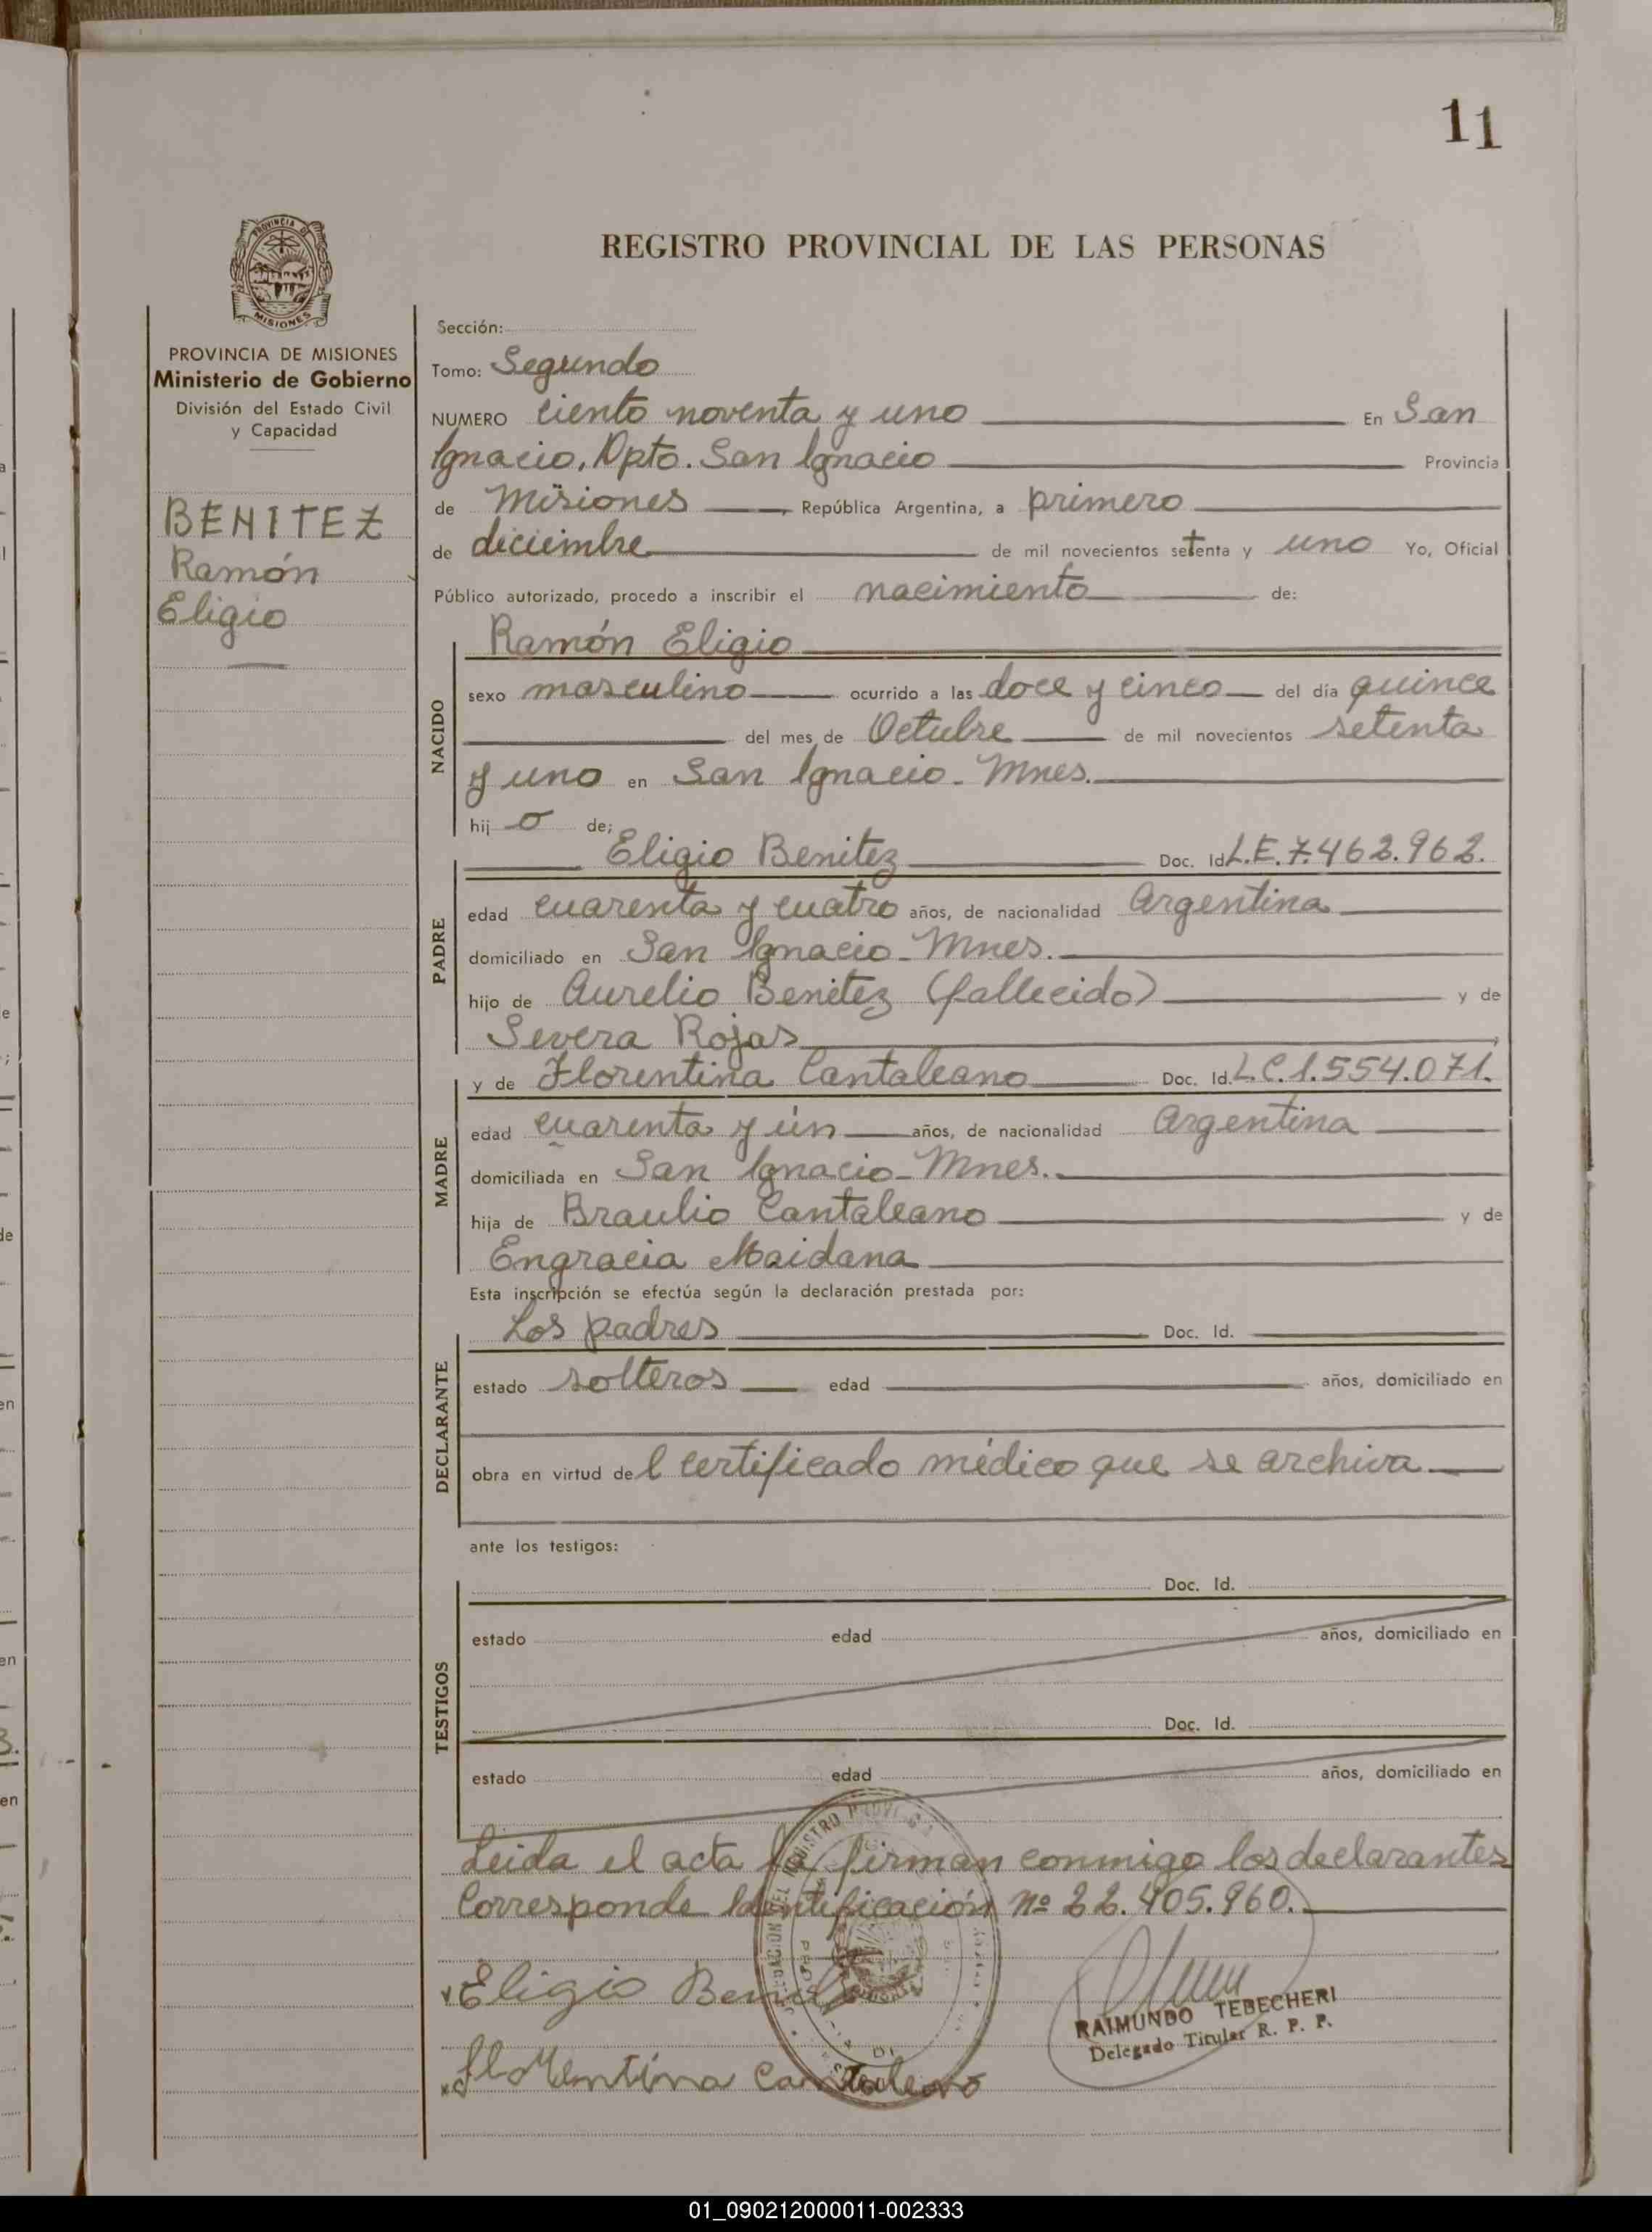 11
PROVINCIA DE
MISIONES
REGISTRO PROVINCIAL DE LAS PERSONAS
PROVINCIA DE MISIONES
Ministerio de Gobierno
División del Estado Civil
y Capacidad
BENITEZ
Ramón
Eligio
Sección:
Tomo: Segundo
NUMERO ciento noventa y uno En San
Ignacio, Dpto. San Ignacio Provincia
de Misiones, República Argentina, a primero
de diciembre de mil novecientos setenta y uno Yo, Oficial
Público autorizado, procedo a inscribir el nacimiento de:
NACIDO
Ramón Eligio
sexo masculino ocurrido a las doce y cinco del día quince
del mes de Octubre de mil novecientos setenta
y uno en San Ignacio - Mnes.
hijo de;
PADRE
Eligio Benitez Doc. Id L.E. 7.462.962.
edad cuarenta y cuatro años, de nacionalidad Argentina
domiciliado en San Ignacio - Mnes.
hijo de Aurelio Benitez (fallecido) y de
Severa Rojas
MADRE
y de Florentina Cantaleano Doc. Id. L.C. 1.554.071.
edad cuarenta y ún años, de nacionalidad Argentina
domiciliada en San Ignacio - Mnes.
hija de Braulio Cantaleano y de
Engracia Maidana
Esta inscripción se efectúa según la declaración prestada por:
DECLARANTE
Los padres Doc. Id.
estado solteros edad años, domiciliado en
obra en virtud del certificado médico que se archiva
ante los testigos:
TESTIGOS
Doc. Id.
estado edad años, domiciliado en
Doc. Id.
estado edad años, domiciliado en
Leida el acta la firman conmigo los declarantes
Corresponde Identificación nº 22.405.960.
Eligio Benitez
RAIMUNDO TEBECHERI
Delegado Titular R. P. P.
Florentina Cantaleano
01_090212000011-002333